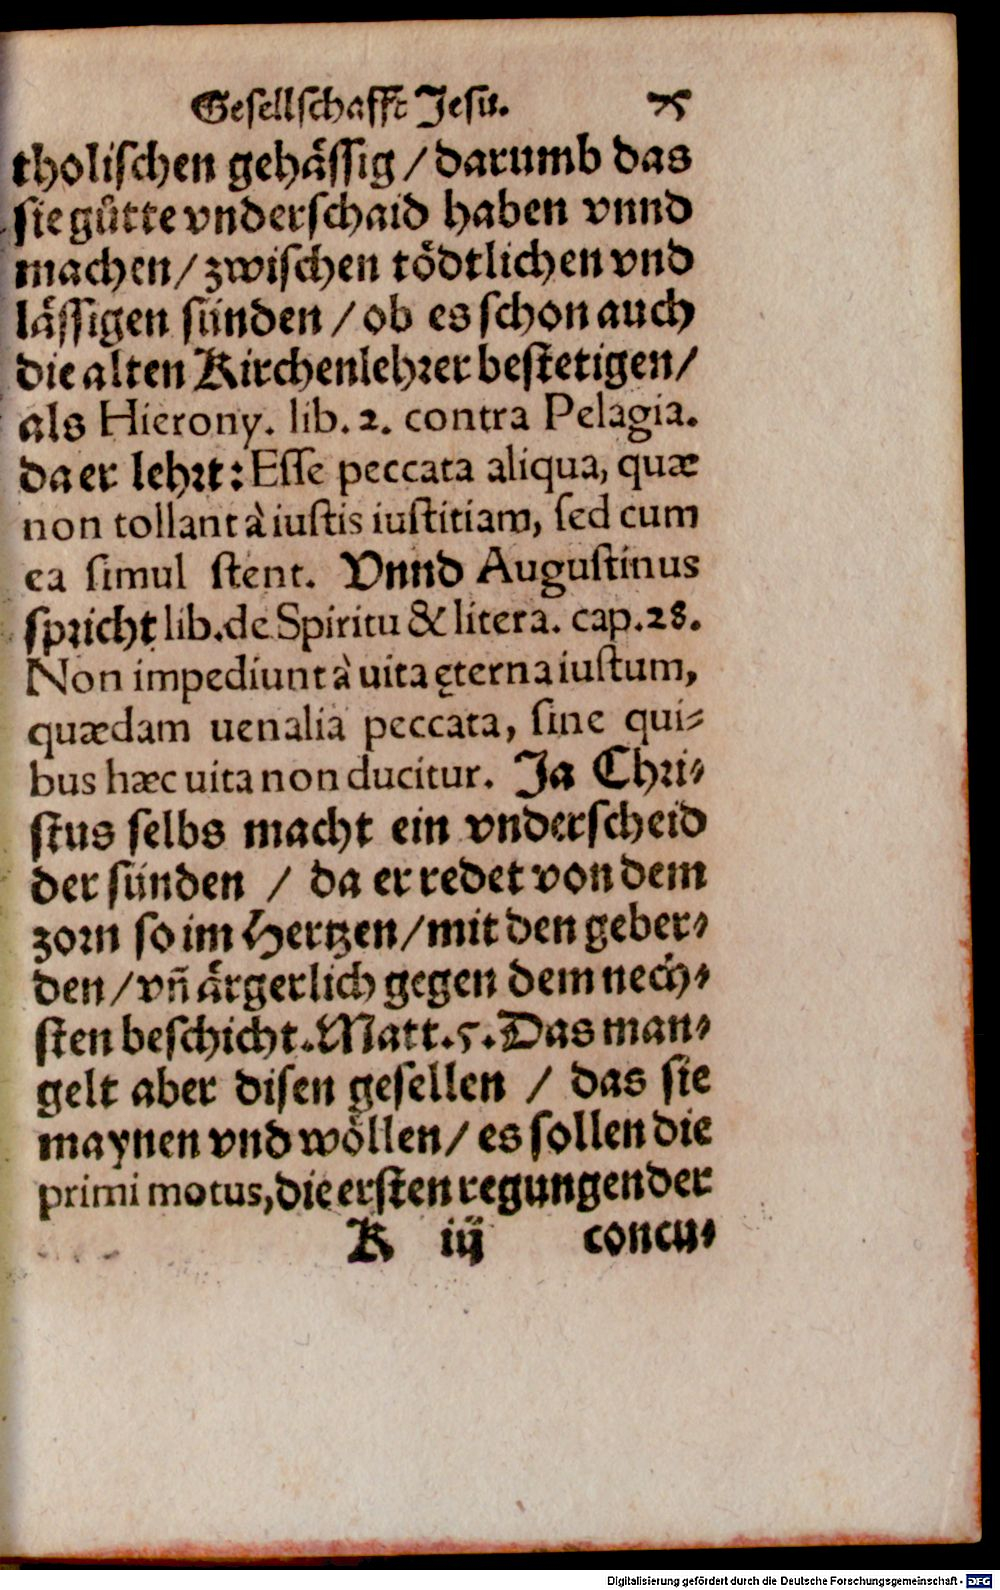 Gesellschafft Jesu. 75
tholischen gehässig / darumb das
sie gůtte vnderschaid haben vnnd
machen / zwischen tödtlichen vnd
lässigen sünden / ob es schon auch
die alten Kirchenlehrer bestetigen /
als Hierony. lib. 2. contra Pelagia.
da er lehrt: Esse peccata aliqua, quæ
non tollant à iustis iustitiam, sed cum
ea simul stent. Vnnd Augustinus
spricht lib. de Spiritu & litera. cap. 28.
Non impediunt à uita ęterna iustum,
quædam uenalia peccata, sine qui-
bus hæc uita non ducitur. Ja Chri-
stus selbs macht ein vnderscheid
der sünden / da er redet von dem
zorn so im Hertzen / mit den geber-
den / vñ ärgerlich gegen dem nech-
sten beschicht. Matt. 5. Das man-
gelt aber disen gesellen / das sie
maynen vnd wöllen / es sollen die
primi motus, die ersten regungen der
K iij concu-
Digitalisierung gefördert durch die Deutsche Forschungsgemeinschaft - DFG